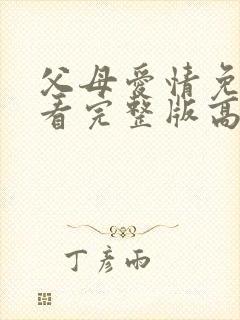 父母爱情免
看完整版高
丁彦雨